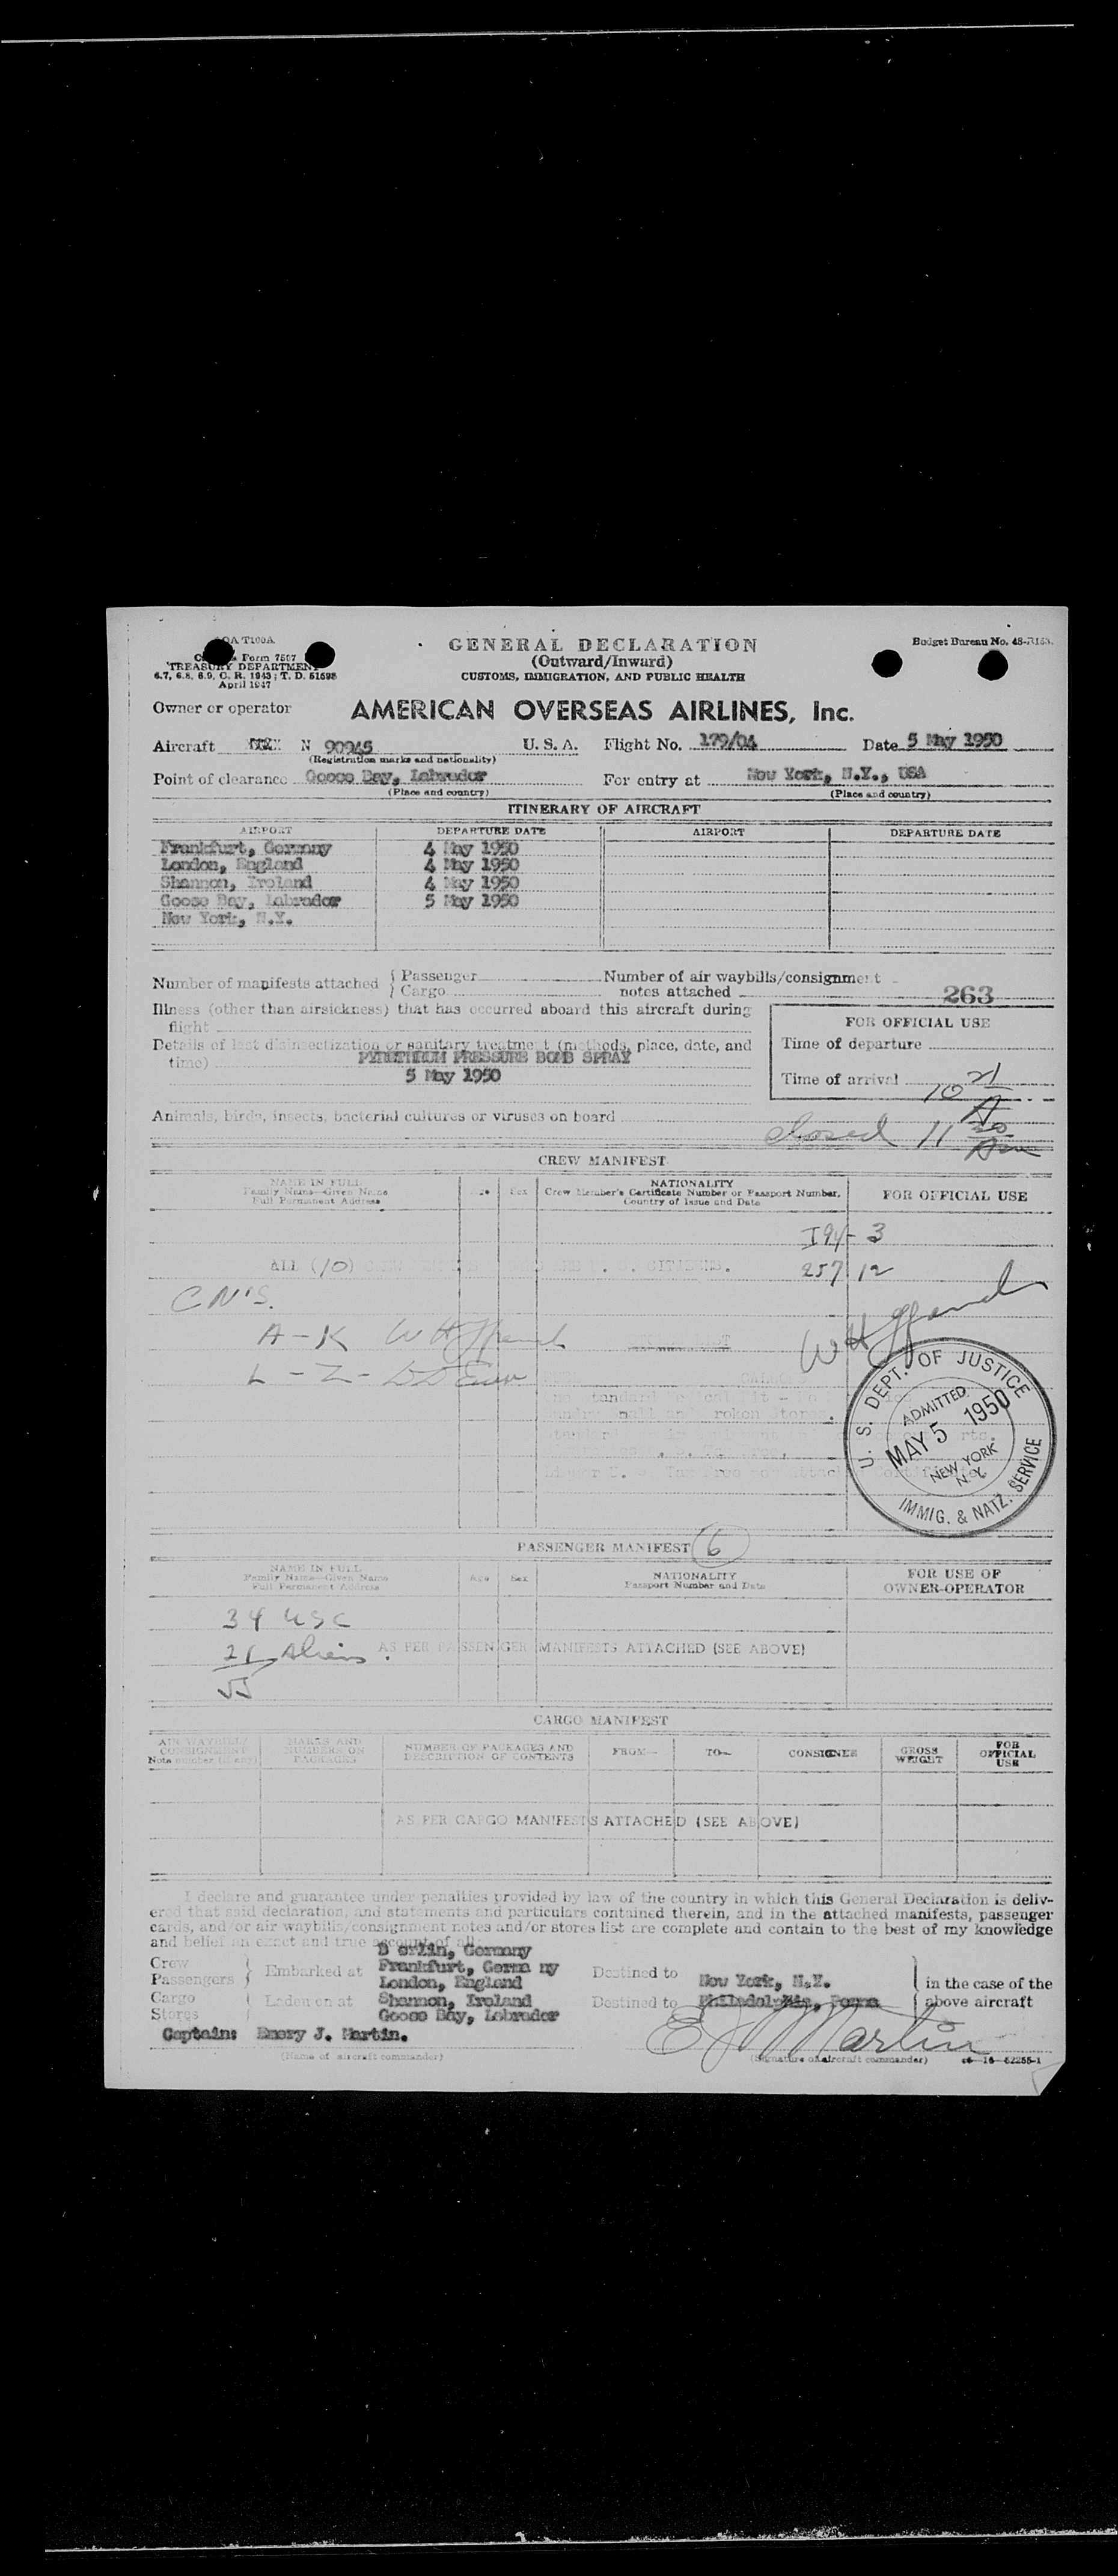 AOA T100A
Form 7507
TREASURY DEPARTMENT
6.7, 6.8, 6.9, C. R. 1943; T. D. 51598
April 1947
GENERAL DECLARATION
(Outward/Inward)
CUSTOMS, IMMIGRATION, AND PUBLIC HEALTH
Budget Bureau No.
Owner or operator AMERICAN OVERSEAS AIRLINES, Inc.
Aircraft N 90945 U. S. A. Flight No. 179/04 Date 5 May 1950
(Registration marks and nationality)
Point of clearance Goose Bay, Labrador For entry at New York, N.Y., USA
(Place and country) (Place and country)
ITINERARY OF AIRCRAFT
AIRPORT DEPARTURE DATE AIRPORT DEPARTURE DATE
Frankfurt, Germany 4 May 1950
London, England 4 May 1950
Shannon, Ireland 4 May 1950
Goose Bay, Labrador 5 May 1950
New York, N.Y.
Number of manifests attached { Passenger Number of air waybills/consignment
Cargo notes attached
263
Illness (other than airsickness) that has occurred aboard this aircraft during
flight
FOR OFFICIAL USE
Details of last disinsectization or sanitary treatment (methods, place, date, and
time) PYRETHRUM PRESSURE BOMB SPRAY
5 May 1950
Time of departure
Time of arrival 10 21 A
Animals, birds, insects, bacterial cultures or viruses on board
closed 11 30 Am
CREW MANIFEST
NAME IN FULL Age Sex NATIONALITY FOR OFFICIAL USE
Family Name—Given Name Crew Member's Certificate Number or Passport Number,
Full Permanent Address Country of Issue and Date
I94 - 3
ALL (10) U. S. CITIZENS. 257 12
CN'S.
A - K
L - Z -
U. S. DEPT. OF JUSTICE
ADMITTED
MAY 5 1950
NEW YORK
N.Y.
IMMIG. & NATZ. SERVICE
PASSENGER MANIFEST 6
NAME IN FULL Age Sex NATIONALITY FOR USE OF
Family Name—Given Name Passport Number and Date OWNER-OPERATOR
Full Permanent Address
34 USC
21 Aliens. AS PER PASSENGER MANIFESTS ATTACHED (SEE ABOVE)
55
CARGO MANIFEST
AIR WAYBILL/ MARKS AND NUMBER OF PACKAGES AND FROM— TO— CONSIGNEE GROSS FOR
CONSIGNMENT NUMBERS ON DESCRIPTION OF CONTENTS WEIGHT OFFICIAL
Note number (if any) PACKAGES USE
AS PER CARGO MANIFESTS ATTACHED (SEE ABOVE)
I declare and guarantee under penalties provided by law of the country in which this General Declaration is deliv-
ered that said declaration, and statements and particulars contained therein, and in the attached manifests, passenger
cards, and/or air waybills/consignment notes and/or stores list are complete and contain to the best of my knowledge
and belief an exact and true account of all:
B erlin, Germany
Crew Frankfurt, Germa ny
Passengers Embarked at London, England Destined to New York, N.Y. in the case of the
Cargo Laden on at Shannon, Ireland Destined to Philadelphia, Penna above aircraft
Stores Goose Bay, Labrador
Captain: Emory J. Martin. E J Martin
(Name of aircraft commander) (Signature of aircraft commander) 16—52255-1